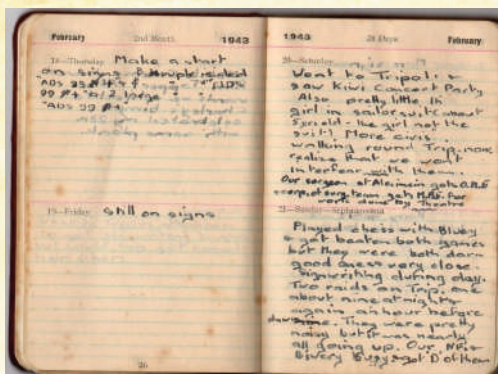 February 2nd Month 1943
18—Thursday Make a start
on signs & needed
"ADS
"
"ADS 99
19—Friday Still on signs
26
1943 28 Days February
20—Saturday
Went to Tripoli &
saw Kiwi Concert Party
Also pretty little It
girl in sailor suit (about
5 yrs old - the girl not the
suit). More civs
walking round Trip. now
realize that we won't
interfear with them.
Our surgeon at Alamein gets O.B.E
& corp. of surg. team gets M.M. for
work done by Theatre
21—Sunday—Septuagesima
Played chess with Bluey
& got beaten both games
but they were both darn
good ones very close.
Signwriting during day.
Two raids on Trip. one
about nine at night &
again an hour before
dawn. They were pretty
noisy but it was nearly
all going up. Our